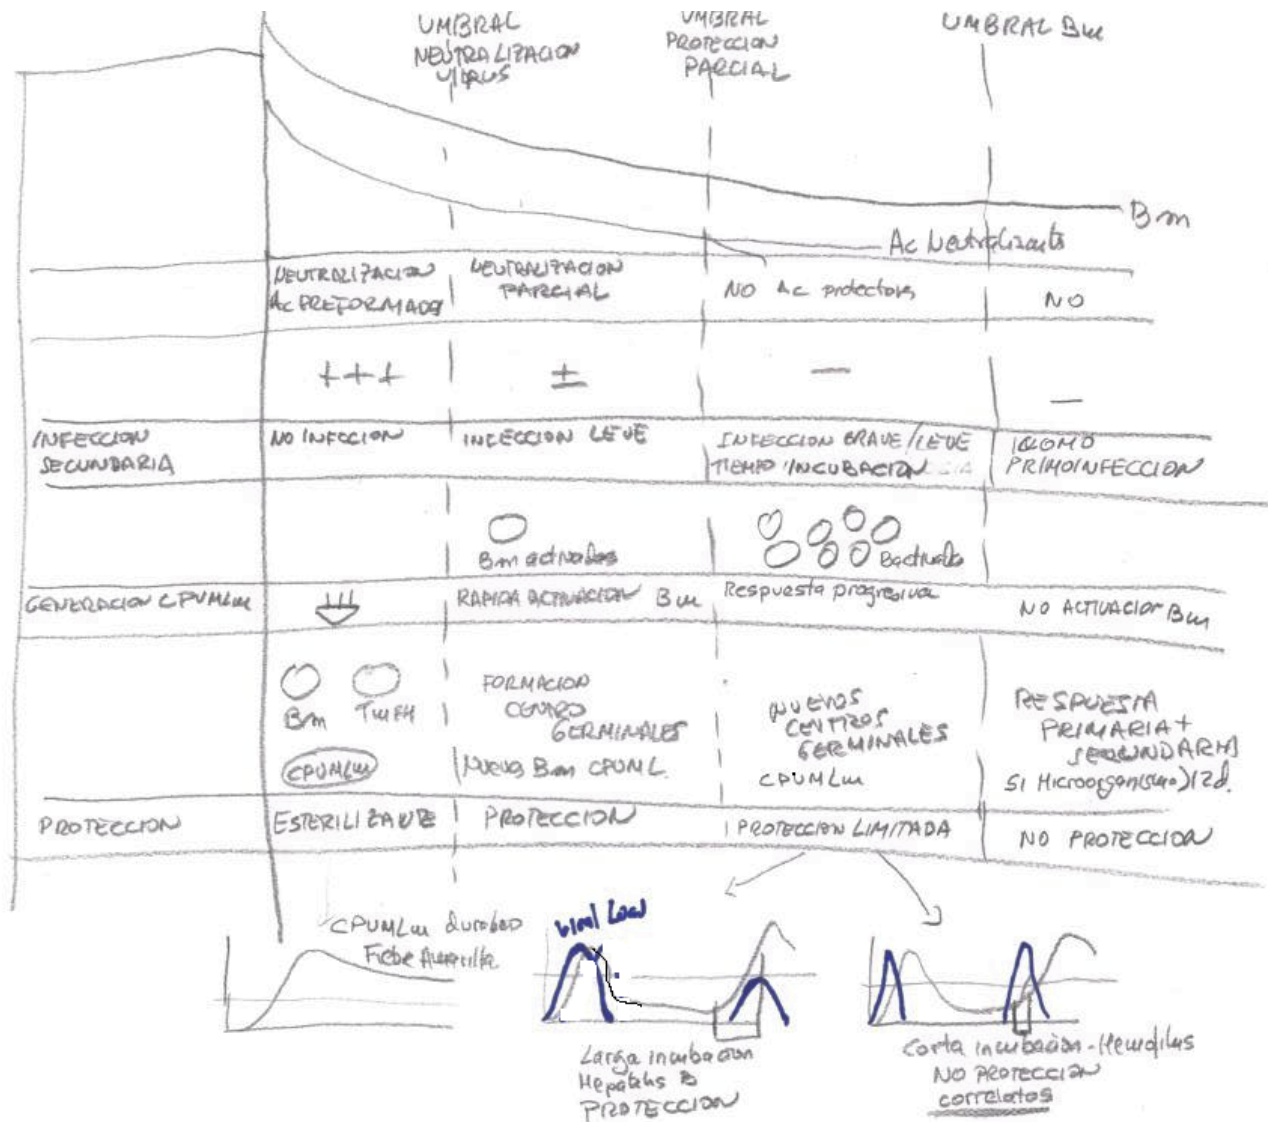 UMBRAL
NEUTRALIZACION
VIRUS
UMBRAL
PROTECCION
PARCIAL
UMBRAL Bm
Bm
Ac Neutralizante
NEUTRALIZACION
Ac PREFORMADOS
NEUTRALIZACION
PARCIAL
NO Ac protectores
NO
+++
±
—
—
INFECCION
SECUNDARIA
NO INFECCION
INFECCION LEVE
INFECCION GRAVE/LEVE
TIEMPO INCUBACION
COMO
PRIMOINFECCION
Bm activadas
Bactivada
GENERACION CPVMLm
RAPIDA ACTIVACION Bm
Respuesta progresiva
NO ACTIVACION Bm
Bm
TmFH
CPVMLm
FORMACION
CENTRO
GERMINALES
Nuevos Bm CPVML
NUEVOS
CENTROS
GERMINALES
CPVMLm
RESPUESTA
PRIMARIA +
SECUNDARIA
SI Microorganismo 12d.
PROTECCION
ESTERILIZANTE
PROTECCION
PROTECCION LIMITADA
NO PROTECCION
CPVMLm
Fiebe Amarilla
Viral Load
Larga incubacion
Hepatitis B
PROTECCION
Corta incubación - Hemofilus
NO PROTECCION
correlatos